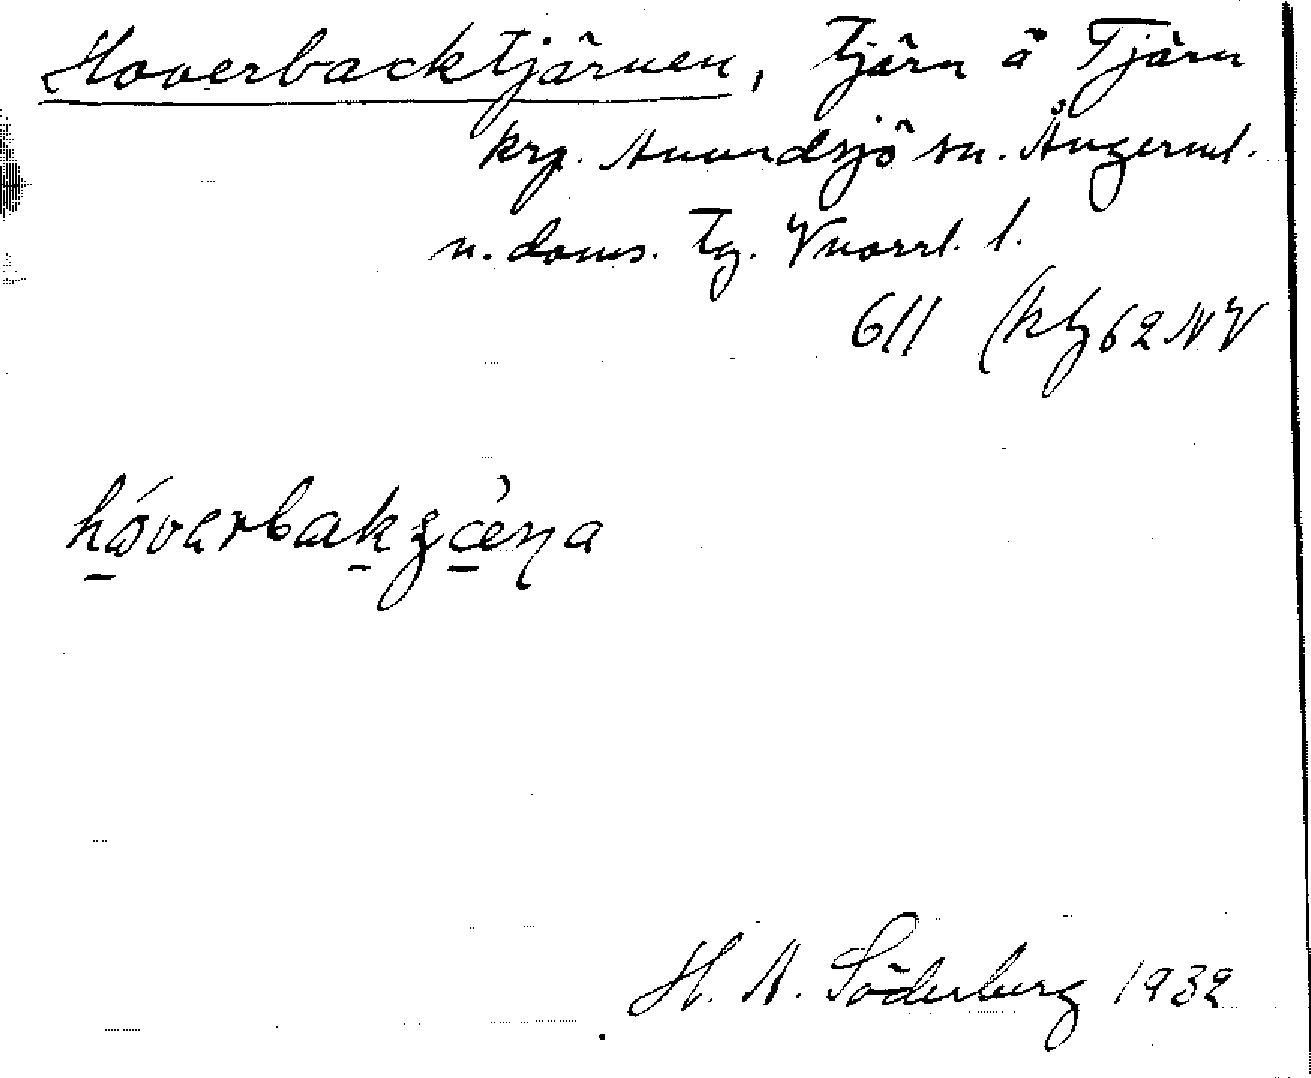 Hoverbacktjärnen, tjärn å Tjärn
krg. Anundsjö sn. Ångerml.
n. doms. tg. Vnorrl. l.
611 (kbl 62 NV
hóvarbakʒœ̀ɳa
H. A. Söderberg 1932